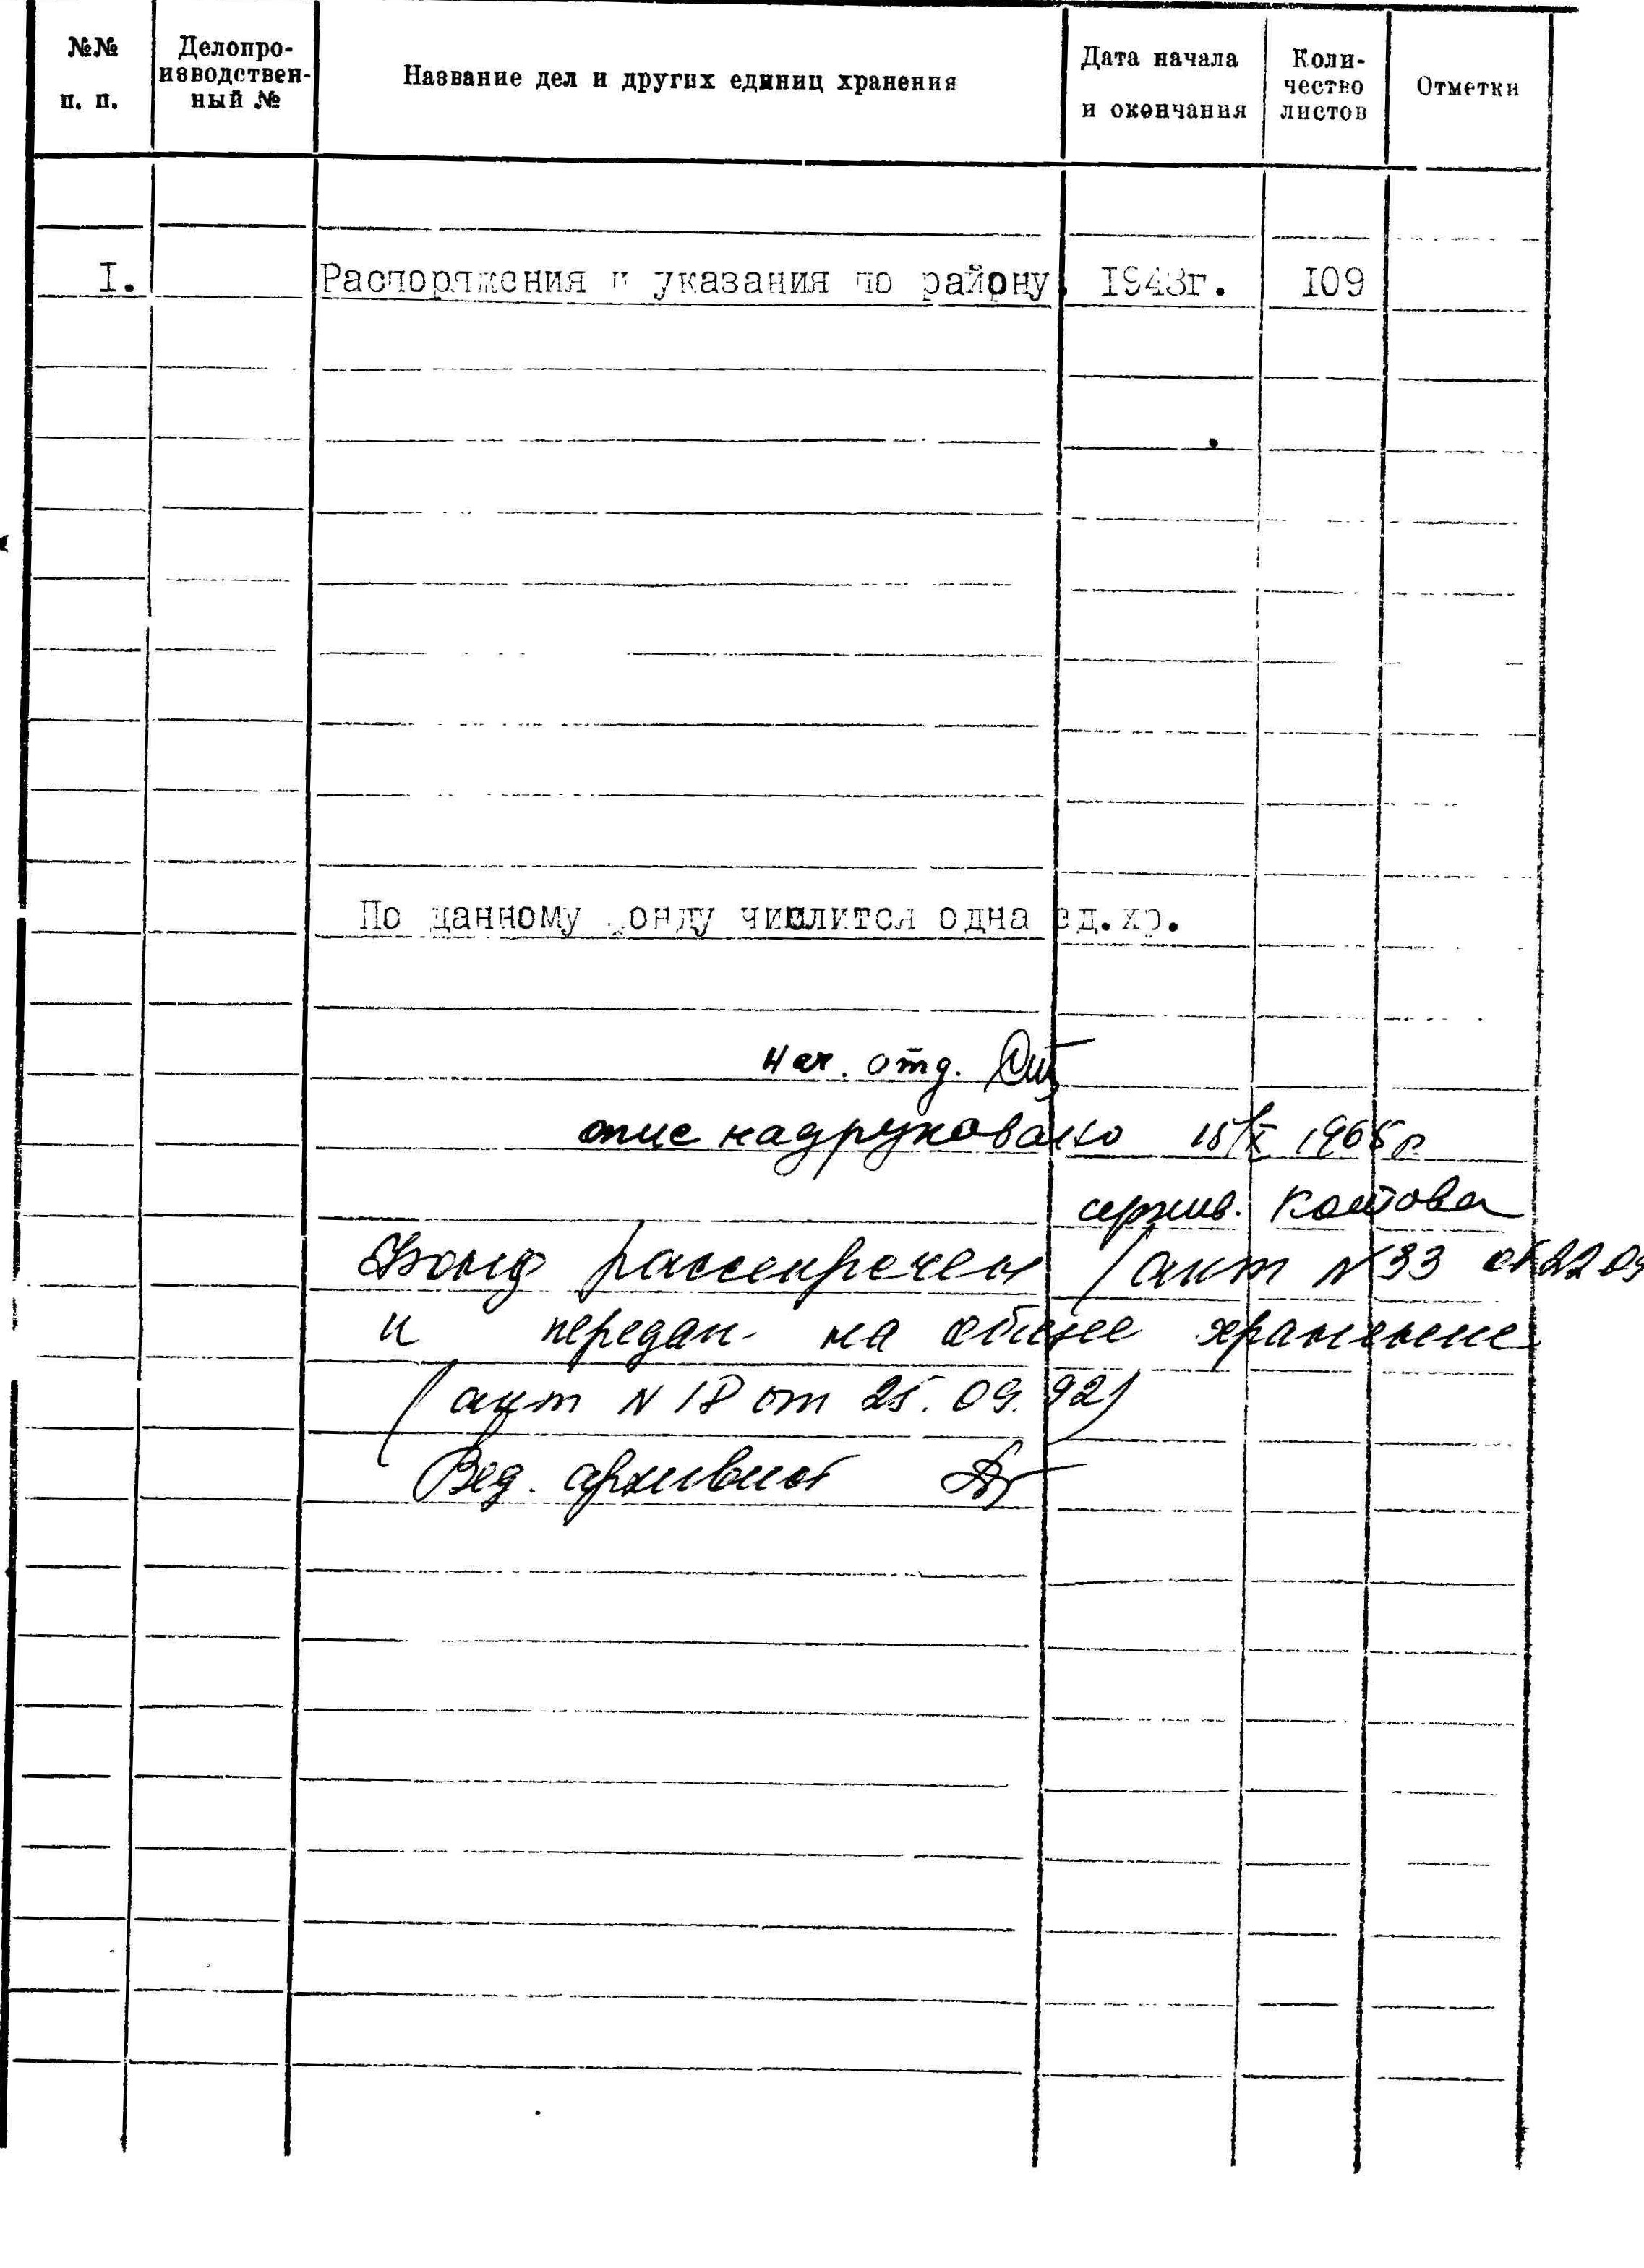 №№ п. п.
Делопро-
изводствен-
ный №
Название дел и других единиц хранения
Дата начала
и окончания
Коли-
чество
листов
Отметки
I. Распоряжения и указания по району 1943г. I09
По данному фонду числится одна ед.хр.
Нач. отд.
опис надруковано 15/X 1965 р.
архив. Котова
Фонд рассекречен (акт N 33 от 22 09
и передан на общее хранение
(акт N 18 от 25.09.92)
Вед. архивист